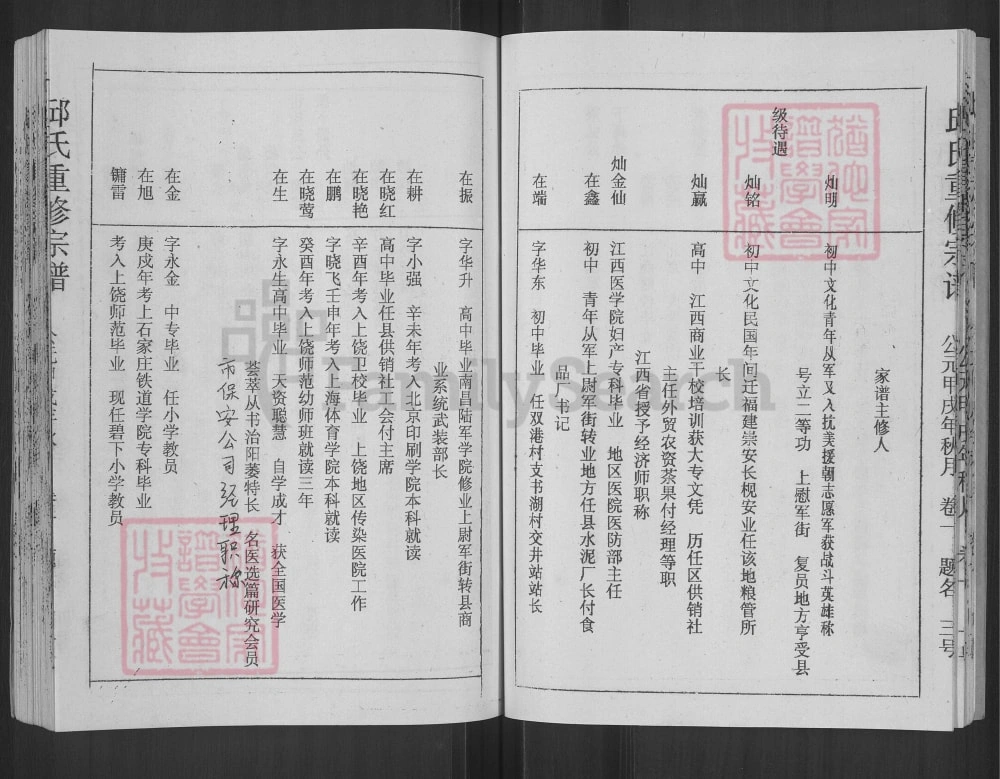 邱氏重修宗谱 公元甲戌年秋月 卷一 题名 三号
家谱主修人
灿明 初中文化青年从军又入抗美援朝志愿军获战斗英雄称
号立二等功 上慰军街 复员地方享受县
级待遇
灿铭 初中文化民国年间迁福建崇安长枧安业任该地粮管所
长
灿赢 高中 江西商业干校培训获大专文凭 历任区供销社
主任外贸农资茶果付经理等职
江西省授予经济师职称
灿金仙 江西医学院妇产专科毕业 地区医院医防部主任
在鑫 初中 青年从军上尉军街转业地方任县水泥厂长付食
品厂书记
在端 字华东 初中毕业 任双港村支书湖村交井站站长
在振 字华升 高中毕业南昌陆军学院修业上尉军街转县商
业系统武装部长
在耕 字小强 辛未年考入北京印刷学院本科就读
在晓红 高中毕业任县供销社工会付主席
在晓艳 辛酉年考入上饶卫校毕业 上饶地区传染医院工作
在鹏 字晓飞壬申年考入上海体育学院本科就读
在晓莺 癸酉年考入上饶师范幼师班就读三年
在生 字永生高中毕业 天资聪慧 自学成才 获全国医学
荟萃从书治阳萎特长 名医选篇研究会员
市保安公司经理职称
在金 字永金 中专毕业 任小学教员
在旭 庚戌年考上石家庄铁道学院专科毕业
镛雷 考入上饶师范毕业 现任碧下小学教员
邱氏重修宗谱
FamilySearch
猶他家譜學會收藏
猶他家譜學會收藏